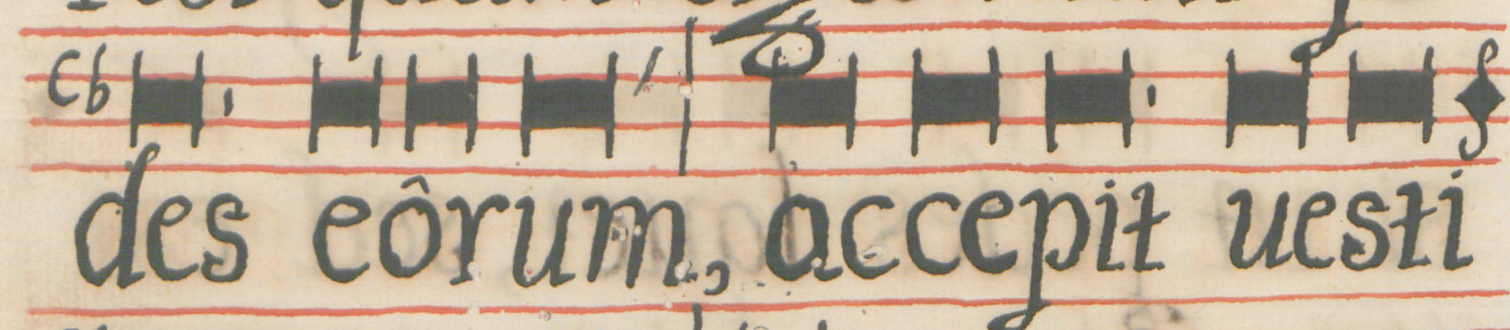 des eôrum, accepit uesti